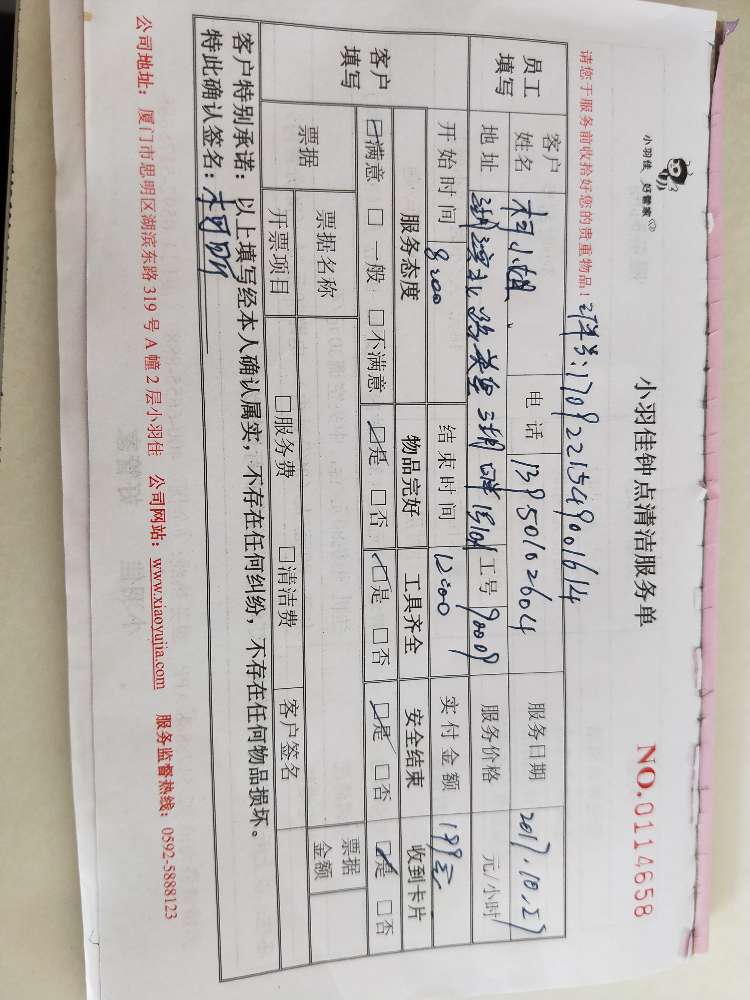 小羽佳 好管家
小羽佳钟点清洁服务单
NO.0114658
请您于服务前收拾好您的贵重物品!
单号:1709221549001614
员工填写
客户姓名 柯小姐 电话 13950102604 服务日期 2017.10.29
地址 湖滨北路 工号 90009 服务价格 元/小时
客户填写
开始时间 8:00 结束时间 12:00 实付金额 199元
服务态度 物品完好 工具齐全 安全结束 收到卡片
☑满意 □一般 □不满意 ☑是 □否 ☑是 □否 ☑是 □否 ☑是 □否
票据 票据名称 票据金额
开票项目 □服务费 □清洁费 客户签名
客户特别承诺:以上填写经本人确认属实,不存在任何纠纷,不存在任何物品损坏。
特此确认签名:
公司地址:厦门市思明区湖滨东路 319 号 A 幢 2 层小羽佳 公司网站:www.xiaoyujia.com 服务监督热线:0592-5888123